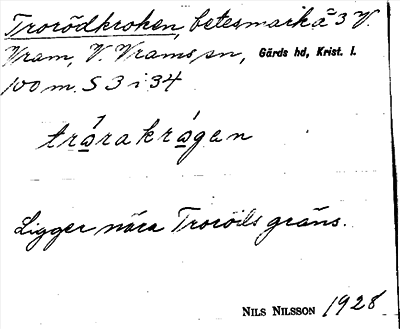 Trorödkroken, betesmark å 3 V.
Vram, V. Vrams sn, Gärds hd, Krist. l.
100 m. S 3 i 34
trå̱rakrå̱gen
Ligger nära Troröds gräns.
NILS NILSSON 1928